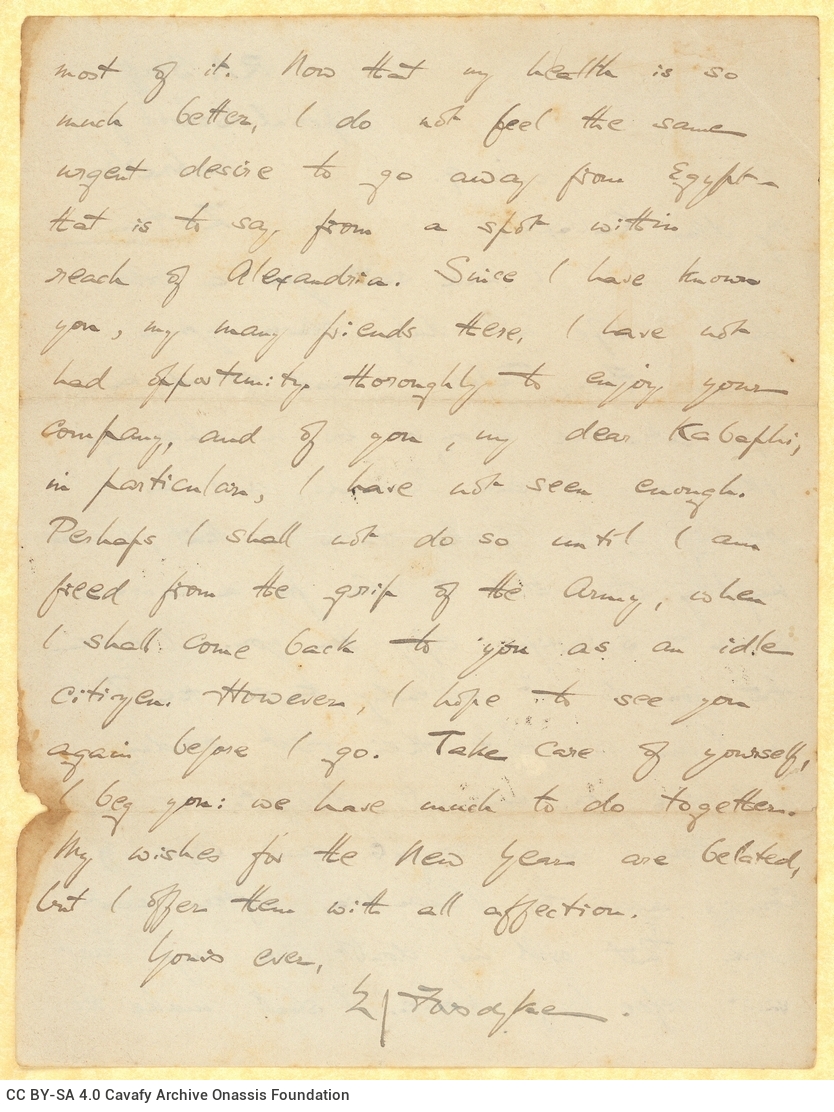 most of it. Now that my health is so
much better, I do not feel the same
urgent desire to go away from Egypt -
that is to say, from a spot within
reach of Alexandria. Since I have known
you, my many friends there, I have not
had opportunity thoroughly to enjoy your
company, and of you, my dear Kabaphi,
in particular, I have not seen enough.
Perhaps I shall not do so until I am
freed from the grip of the Army, when
I shall come back to you as an idle
citizen. However, I hope to see you
again before I go. Take care of yourself,
I beg you: we have much to do together.
My wishes for the New Year are belated,
but I offer them with all affection.
Yours ever,
EJ Forsdyke.
CC BY-SA 4.0 Cavafy Archive Onassis Foundation